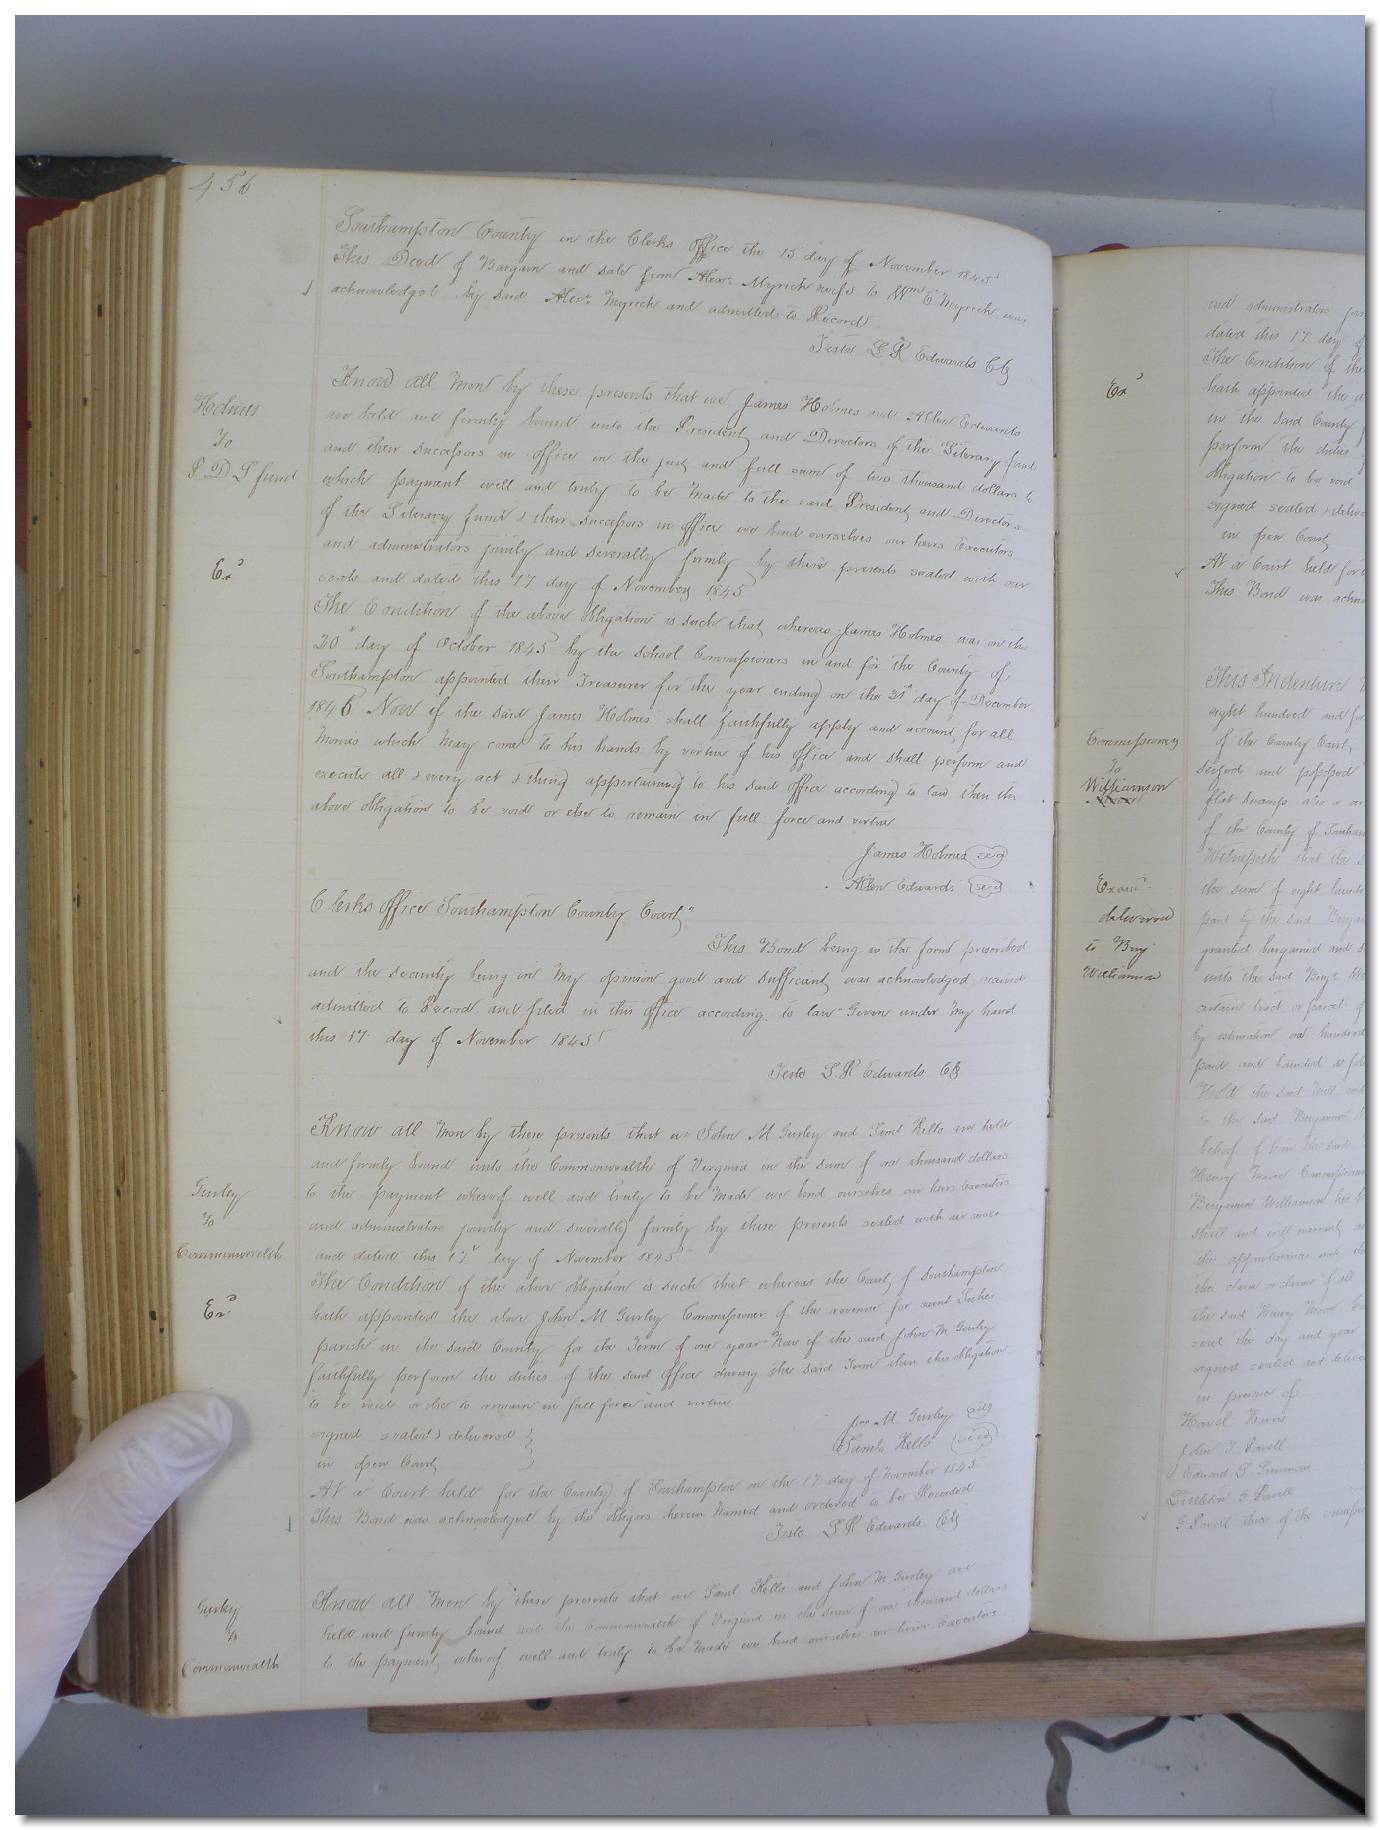 456
Southampton County in the Clerks Office the 15 day of November 1845
This Deed of Bargain and Sale from Alexr Myrick to Wm E Myrick was
acknowledged by said Alexr Myrick and admitted to Record
Teste L R Edwards Clk
Holmes
To
P D L fund
Exd
Know all Men by these presents that we James Holmes and Allen Edwards
are held and firmly bound unto the President and Directors of the Literary fund
and their successors in office in the just and full sum of two thousand dollars to
which payment well and truly to be Made to the said President and Directors
of the Literary fund & their successors in office we bind ourselves our heirs Executors
and administrators jointly and severally firmly by these presents sealed with our
seals and dated this 17 day of November 1845
The Condition of the above obligation is such that whereas James Holmes was on the
20 day of October 1845 by the School Commissioners in and for the County of
Southampton appointed their Treasurer for the year ending on the 31st day of December
1846 Now if the said James Holmes shall faithfully apply and account for all
Monies which May come to his hands by virtue of his office and shall perform and
execute all & every act & thing appertaining to his said office according to law then the
above obligation to be void or else to remain in full force and virtue
James Holmes seal
Allen Edwards seal
Clerks Office Southampton County Court
This Bond being in the form prescribed
and the security being in My opinion good and sufficient was acknowledged received
admitted to Record and filed in this office according to law Given under My hand
this 17 day of November 1845
Teste L R Edwards Clk
Gurley
To
Commonwealth
Exd
Know all Men by these presents that we John M Gurley and Saml Kello are held
and firmly bound unto the Commonwealth of Virginia in the sum of one thousand dollars
to the payment whereof well and truly to be Made we bind ourselves our heirs Executors
and administrators jointly and severally firmly by these presents sealed with our seals
and dated this 17 day of November 1845
The Condition of the above obligation is such that whereas the Court of Southampton
hath appointed the above John M Gurley Commissioner of the revenue for saint Lukes
parish in the said County for the Term of one year Now if the said John M Gurley
faithfully perform the duties of the said office during the said Term then this obligation
to be void or else to remain in full force and virtue
signed sealed & delivered
in open Court
Jno M Gurley seal
Saml Kello seal
At a Court held for the County of Southampton on the 17 day of November 1845
This Bond was acknowledged by the obligors herein Named and ordered to be Recorded
Teste L R Edwards Clk
Gurley
To
Commonwealth
Know all Men by these presents that we Saml Kello and John M Gurley are
held and firmly bound unto the Commonwealth of Virginia in the sum of one thousand dollars
to the payment whereof well and truly to be Made we bind ourselves our heirs Executors
and administrators
dated this 17 day of
The Condition of the
hath appointed the
in the said County
perform the duties
obligation to be void
signed sealed & deliv
in open Court
At a Court held for
This Bond was ackn
Exd
This Indenture
eight hundred and fo
of the County Court
seized and possessed
flat swamp also a
of the County of Southam
Witnesseth that the
the sum of eight hund
paid by the said Benja
granted bargained and s
unto the said Benj
certain tract or parcel of
by estimation one hundred
Commissioners
To
Williamson
Exam
delivered
to Benj
Williamson
Hold the said
to the said Benjamin
Henry Moore Commissioner
Benjamin Williamson his
shall and will warrant
the appurtenances unto the
the claim or claims of all
the said Henry Moore
seal the day and year
signed sealed and deliver
in presence of
John T Savell
Edward S Simmons
Littleton G Savell